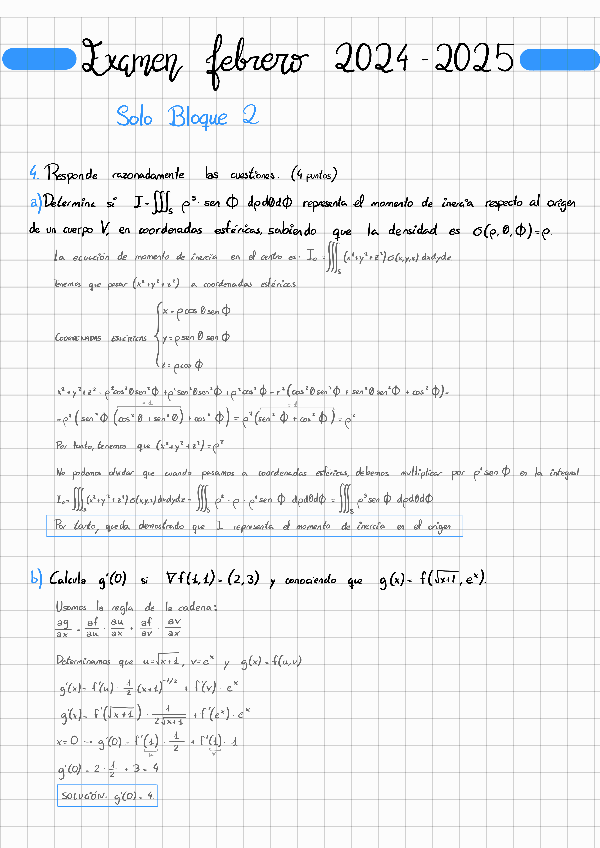 Examen febrero 2024-2025
Solo Bloque 2
4. Responde razonadamente las cuestiones. (4 puntos)
a) Determine si I = ∭_S ρ⁵ · sen Φ dρdθdΦ representa el momento de inercia respecto al origen
de un cuerpo V, en coordenadas esféricas, sabiendo que la densidad es σ(ρ, θ, Φ) = ρ.
La ecuación de momento de inercia en el centro es: I₀ = ∭_S (x²+y²+z²) σ(x,y,z) dxdydz
Tenemos que pasar (x²+y²+z²) a coordenadas esféricas
x = ρ cos θ sen Φ
COORDENADAS ESFÉRICAS { y = ρ sen θ sen Φ
z = ρ cos Φ
x²+y²+z² = ρ² cos² θ sen² Φ + ρ² sen² θ sen² Φ + ρ² cos² Φ = r² (cos² θ sen² Φ + sen² θ sen² Φ + cos² Φ) =
= ρ² (sen² Φ (cos² θ + sen² θ) + cos² Φ) = ρ² (sen² Φ + cos² Φ) = ρ²
Por tanto, tenemos que (x²+y²+z²) = ρ²
No podemos olvidar que cuando pasamos a coordenadas esféricas, debemos multiplicar por ρ² sen Φ en la integral
I₀ = ∭_S (x²+y²+z²) σ(x,y,z) dxdydz = ∭_S ρ² · ρ · ρ² sen Φ dρdθdΦ = ∭_S ρ⁵ sen Φ dρdθdΦ
Por tanto, queda demostrado que I representa el momento de inercia en el origen
b) Calcule g'(0) si ∇f(1,1) = (2,3) y conociendo que g(x) = f(√x+1, eˣ).
Usamos la regla de la cadena:
∂g/∂x = ∂f/∂u · ∂u/∂x + ∂f/∂v · ∂v/∂x
Determinamos que u = √x+1, v = eˣ y g(x) = f(u,v)
g'(x) = f'(u) · 1/2 (x+1)^(-1/2) + f'(v) · eˣ
g'(x) = f'(√x+1) · 1/(2√x+1) + f'(eˣ) · eˣ
x = 0 → g'(0) = f'(1) · 1/2 + f'(1) · 1
g'(0) = 2 · 1/2 + 3 = 4
SOLUCIÓN: g'(0) = 4